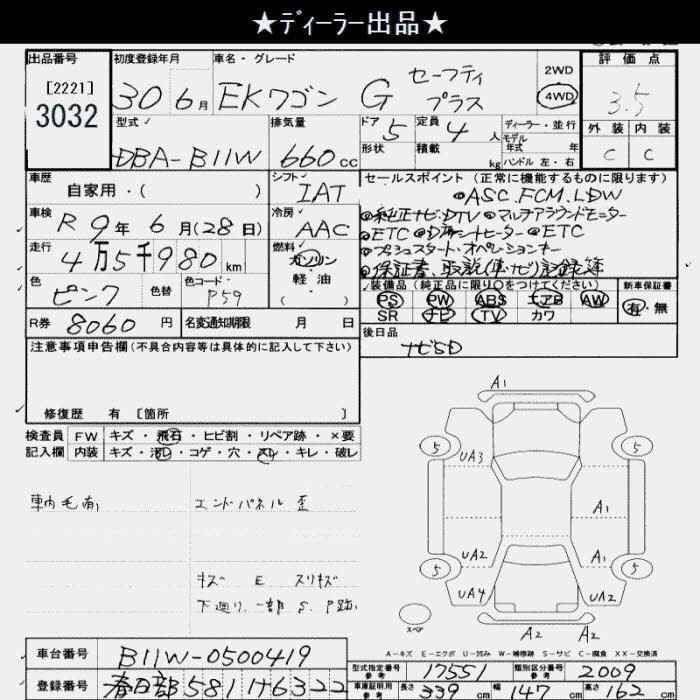 ★ディーラー出品★
出品番号
[2221]
3032
初度登録年月
30年6月
車名・グレード
EKワゴン G セーフティ
プラス
2WD
4WD
評価点
3.5
外装 内装
C C
型式
DBA-B11W
排気量
660cc
ドア 5
形状
定員 4人
積載 kg
ディーラー・並行
モデル
年式 年
ハンドル 左・右
車歴
自家用・( )
シフト
IAT
車検
R 9年 6月(28日)
冷房
AAC
走行
4万5千980km
燃料
ガソリン
軽油
( )
色
ピンク
色替
色コード
P59
R券 8060円
名変通知期限 月 日
セールスポイント(正常に機能するものに限ります)
◎ASC.FCM.LDW
◎純正ナビDTV ◎マルチアラウンドモニター
◎ETC
◎ETC
◎プッシュスタート・オペレーションキー
◎保証書、取説(車・ナビ)記録簿
装備品(純正品に限り○をつけてください)
PS PW ABS エアB AW
SR ナビ TV カワ
新車保証書
有・無
後日品
ナビSD
注意事項申告欄(不具合内容等は具体的に記入して下さい)
修復歴 有 〔箇所 〕
検査員 FW キズ・飛石・ヒビ割・リペア跡・×要
記入欄 内装 キズ・汚れ・コゲ・穴・スレ・キレ・破レ
車内毛有
エンドパネル 歪
キズ E スリキズ
下廻り、一部 S. P跡
A1
5
5
UA3
A1
UA2
A1
5
5
UA4
UA2
スペア
A2 A2
A-キズ E-エクボ U-凹み W-補修跡 S-サビ C-腐食 XX-交換済
車台番号 B11W-0500419
登録番号 春日部581 い6322
型式指定番号
参考
17551
類別区分番号
参考
2009
車庫証明用
参考
長さ 339cm 幅 147cm 高さ 162cm